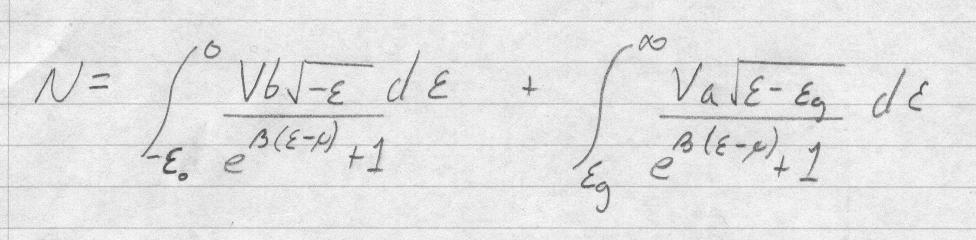 N = ∫_{-ε₀}^{0} \frac{Vb√(-ε) dε}{e^{β(ε-μ)} + 1} + ∫_{ε_g}^{∞} \frac{Va√(ε-ε_g)}{e^{β(ε-μ)} + 1} dε